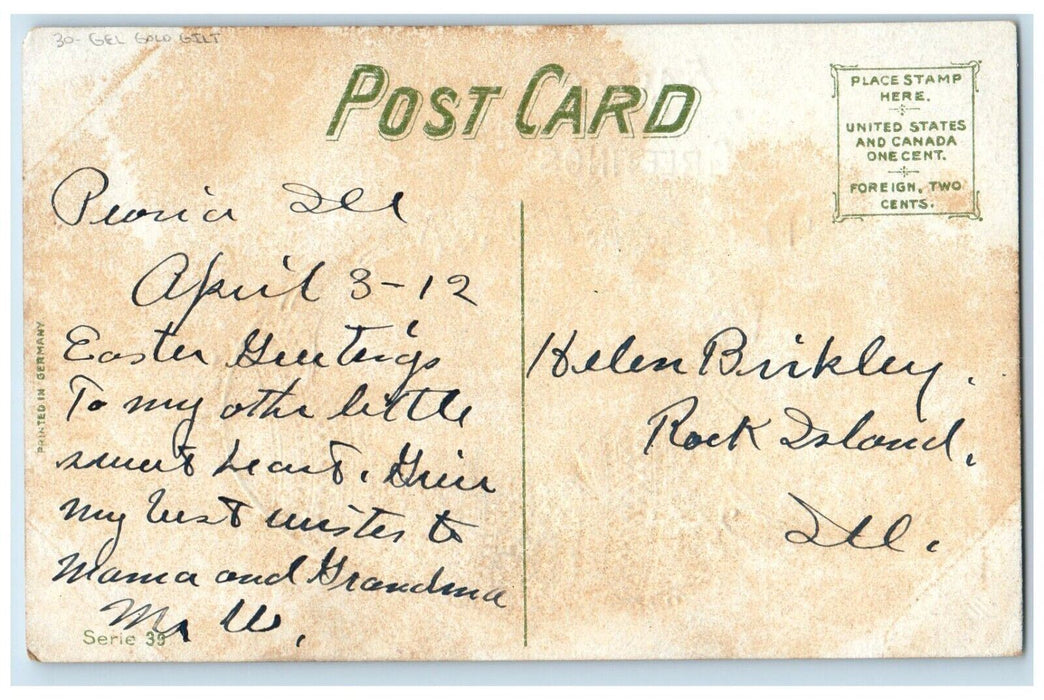 30- GEL GOLD GILT
POST CARD
PLACE STAMP
HERE.
UNITED STATES
AND CANADA
ONE CENT.
FOREIGN, TWO
CENTS.
Peoria Ill
April 3-12
Easter Greetings
To my other little
sweet heart. Give
my best wishes to
Mama and Grandma
Mr W.
Helen Brikley.
Rock Island,
Ill.
PRINTED IN GERMANY
Serie 39